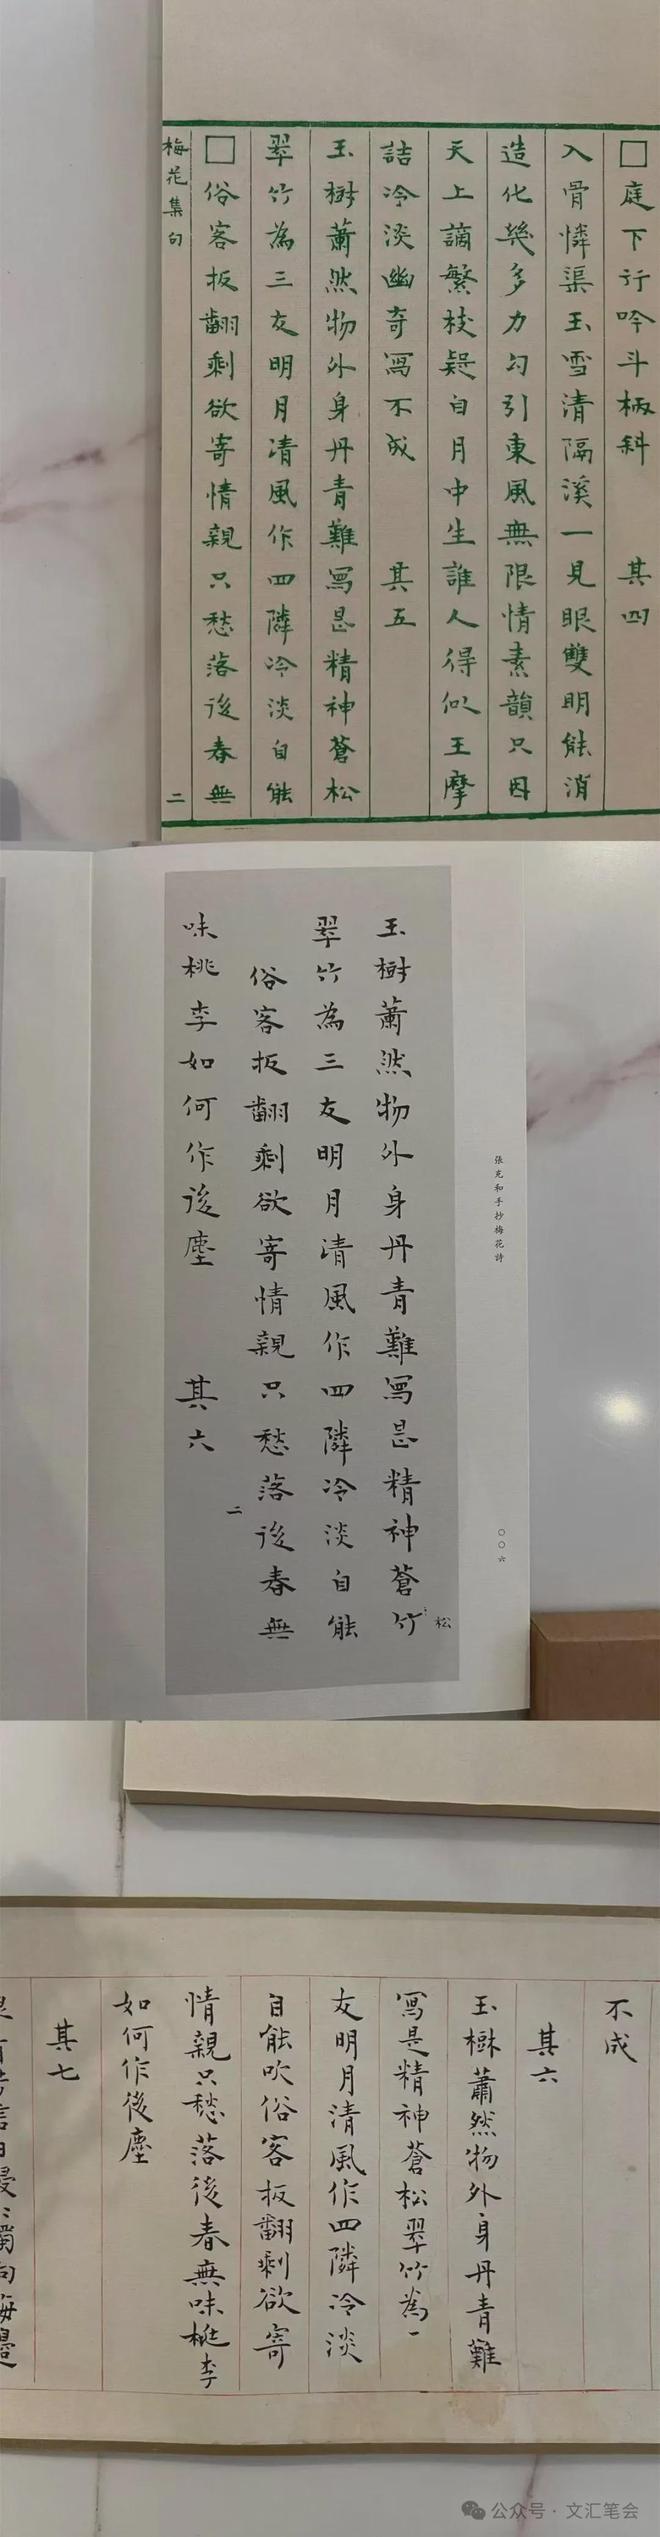 □庭下行吟斗柄斜 其四
入骨憐渠玉雪清隔溪一見眼雙明能消
造化幾多力勾引東風無限情素韻只因
天上謫繁枝疑自月中生誰人得似王摩
詰冷淡幽奇寫不成 其五
玉樹蕭然物外身丹青難寫是精神蒼松
翠竹為三友明月清風作四隣冷淡自能
□俗客扳翻剩欲寄情親只愁落後春無
梅花集句 二
張充和手抄梅花詩
〇〇六
玉樹蕭然物外身丹青難寫是精神蒼竹
松
翠竹為三友明月清風作四隣冷淡自能
俗客扳翻剩欲寄情親只愁落後春無
二
味桃李如何作後塵 其六
不成
其六
玉樹蕭然物外身丹青難
寫是精神蒼松翠竹為一
友明月清風作四隣冷淡
自能吹俗客扳翻剩欲寄
情親只愁落後春無味桃李
如何作後塵
其七
公众号·文汇笔会